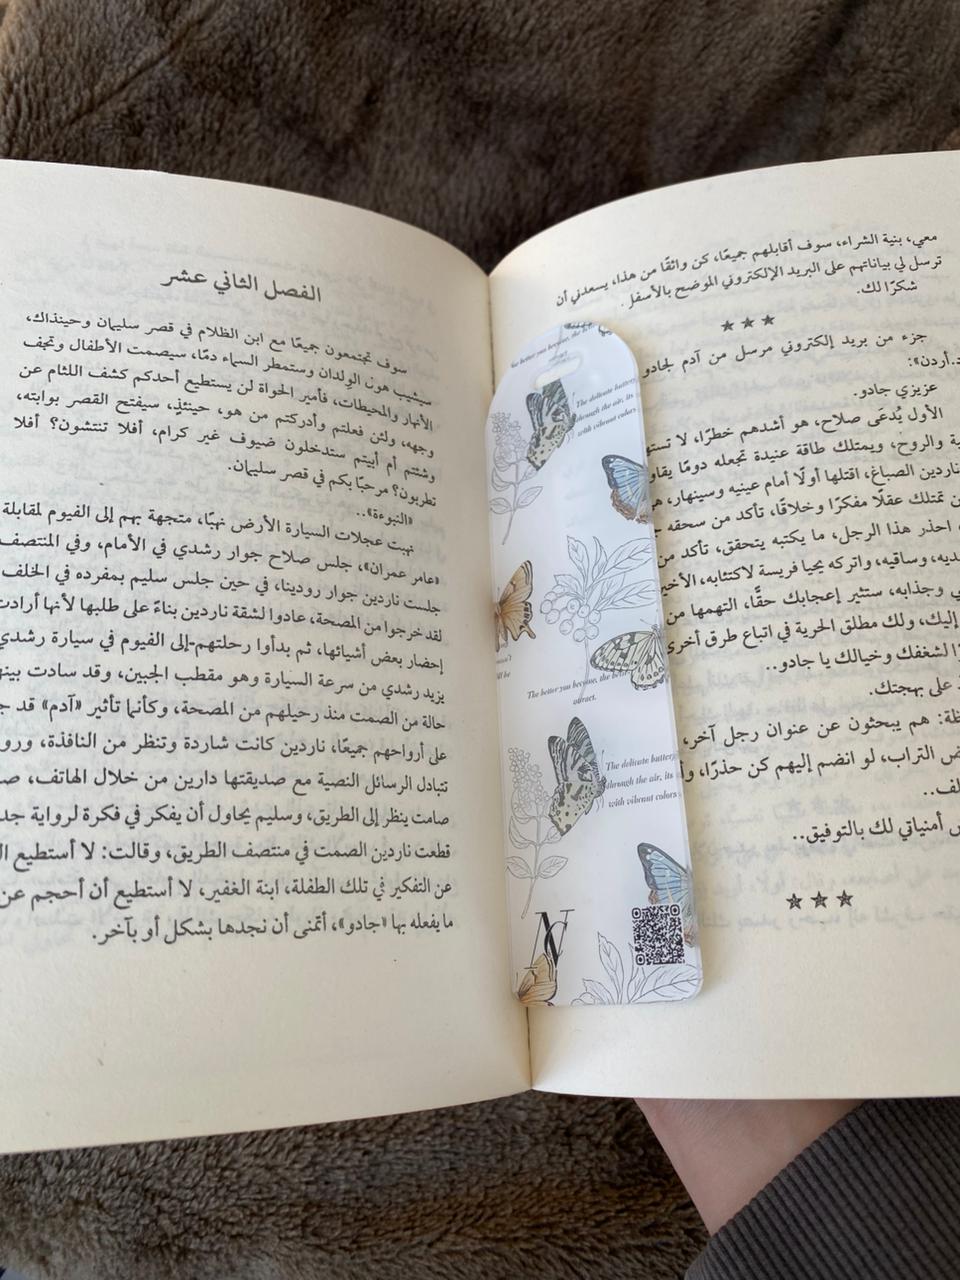 معي، بنية الشراء، سوف أقابلهم جميعًا، كن واثقًا من هذا، يسعدني أن
ترسل لي بياناتهم على البريد الإلكتروني الموضح بالأسفل.
شكرًا لك.
★★★
جزء من بريد إلكتروني مرسل من آدم لجادو
د.أردن»:
عزيزي جادو.
الأول يُدعَى صلاح، هو أشدهم خطرًا، لا
ية والروح، ويمتلك طاقة عنيدة تجعله دومًا
ناردين الصباغ، اقتلها أولًا أمام عينيه وسينهار،
تمتلك عقلًا مفكرًا وخلاقًا، تأكد من سحقه
احذر هذا الرجل، ما يكتبه يتحقق، تأكد من
ديه، وساقيه، واتركه يحيا فريسة لاكتئابه،
ي وجذابه، ستثير إعجابك حقًّا، التهمها من
إليك، ولك مطلق الحرية في اتباع طرق أخرى
ا لشغفك وخيالك يا جادو..
على بهجتك.
ظة: هم يبحثون عن عنوان رجل آخر،
ض التراب، لو انضم إليهم كن حذرًا،
لف..
أمنياتي لك بالتوفيق..
★★★
The delicate butterf
through the air, its
with vibrant colors
The better you become, the better
attract.
The delicate butterf
through the air, its
with vibrant colors
N
الفصل الثاني عشر
سوف تجتمعون جميعًا مع ابن الظلام في قصر سليمان وحينذاك،
سيشيب هول الولدان وستمطر السماء دمًا، سيصمت الأطفال وتجف
الأنهار والمحيطات، فأمير الحواة لن يستطيع أحدكم كشف اللثام عن
وجهه، ولئن فعلتم وأدركتم من هو، حينئذٍ، سيفتح القصر بوابته،
وشئتم أم أبيتم ستدخلون ضيوف غير كرام، أفلا تنتشون؟ أفلا
تطربون؟ مرحبًا بكم في قصر سليمان.
«النبوءة»..
نهبت عجلات السيارة الأرض نهبًا، متجهة بهم إلى الفيوم لمقابلة
«عامر عمران»، جلس صلاح جوار رشدي في الأمام، وفي المنتصف
جلست ناردين جوار رودينا، في حين جلس سليم بمفرده في الخلف
لقد خرجوا من المصحة، عادوا لشقة ناردين بناءً على طلبها لأنها أرادت
إحضار بعض أشيائها، ثم بدأوا رحلتهم-إلى الفيوم في سيارة رشدي
يزيد رشدي من سرعة السيارة وهو مقطب الجبين، وقد سادت
حالة من الصمت منذ رحيلهم من المصحة، وكأنما تأثير «آدم» قد
على أرواحهم جميعًا، ناردين كانت شاردة وتنظر من النافذة،
تتبادل الرسائل النصية مع صديقتها دارين من خلال الهاتف،
صامت ينظر إلى الطريق، وسليم يحاول أن يفكر في فكرة لرواية
قطعت ناردين الصمت في منتصف الطريق، وقالت: لا أستطيع
عن التفكير في تلك الطفلة، ابنة الغفير، لا أستطيع أن أحجم عن
ما يفعله بها «جادو»، أتمنى أن نجدها بشكل أو بآخر.